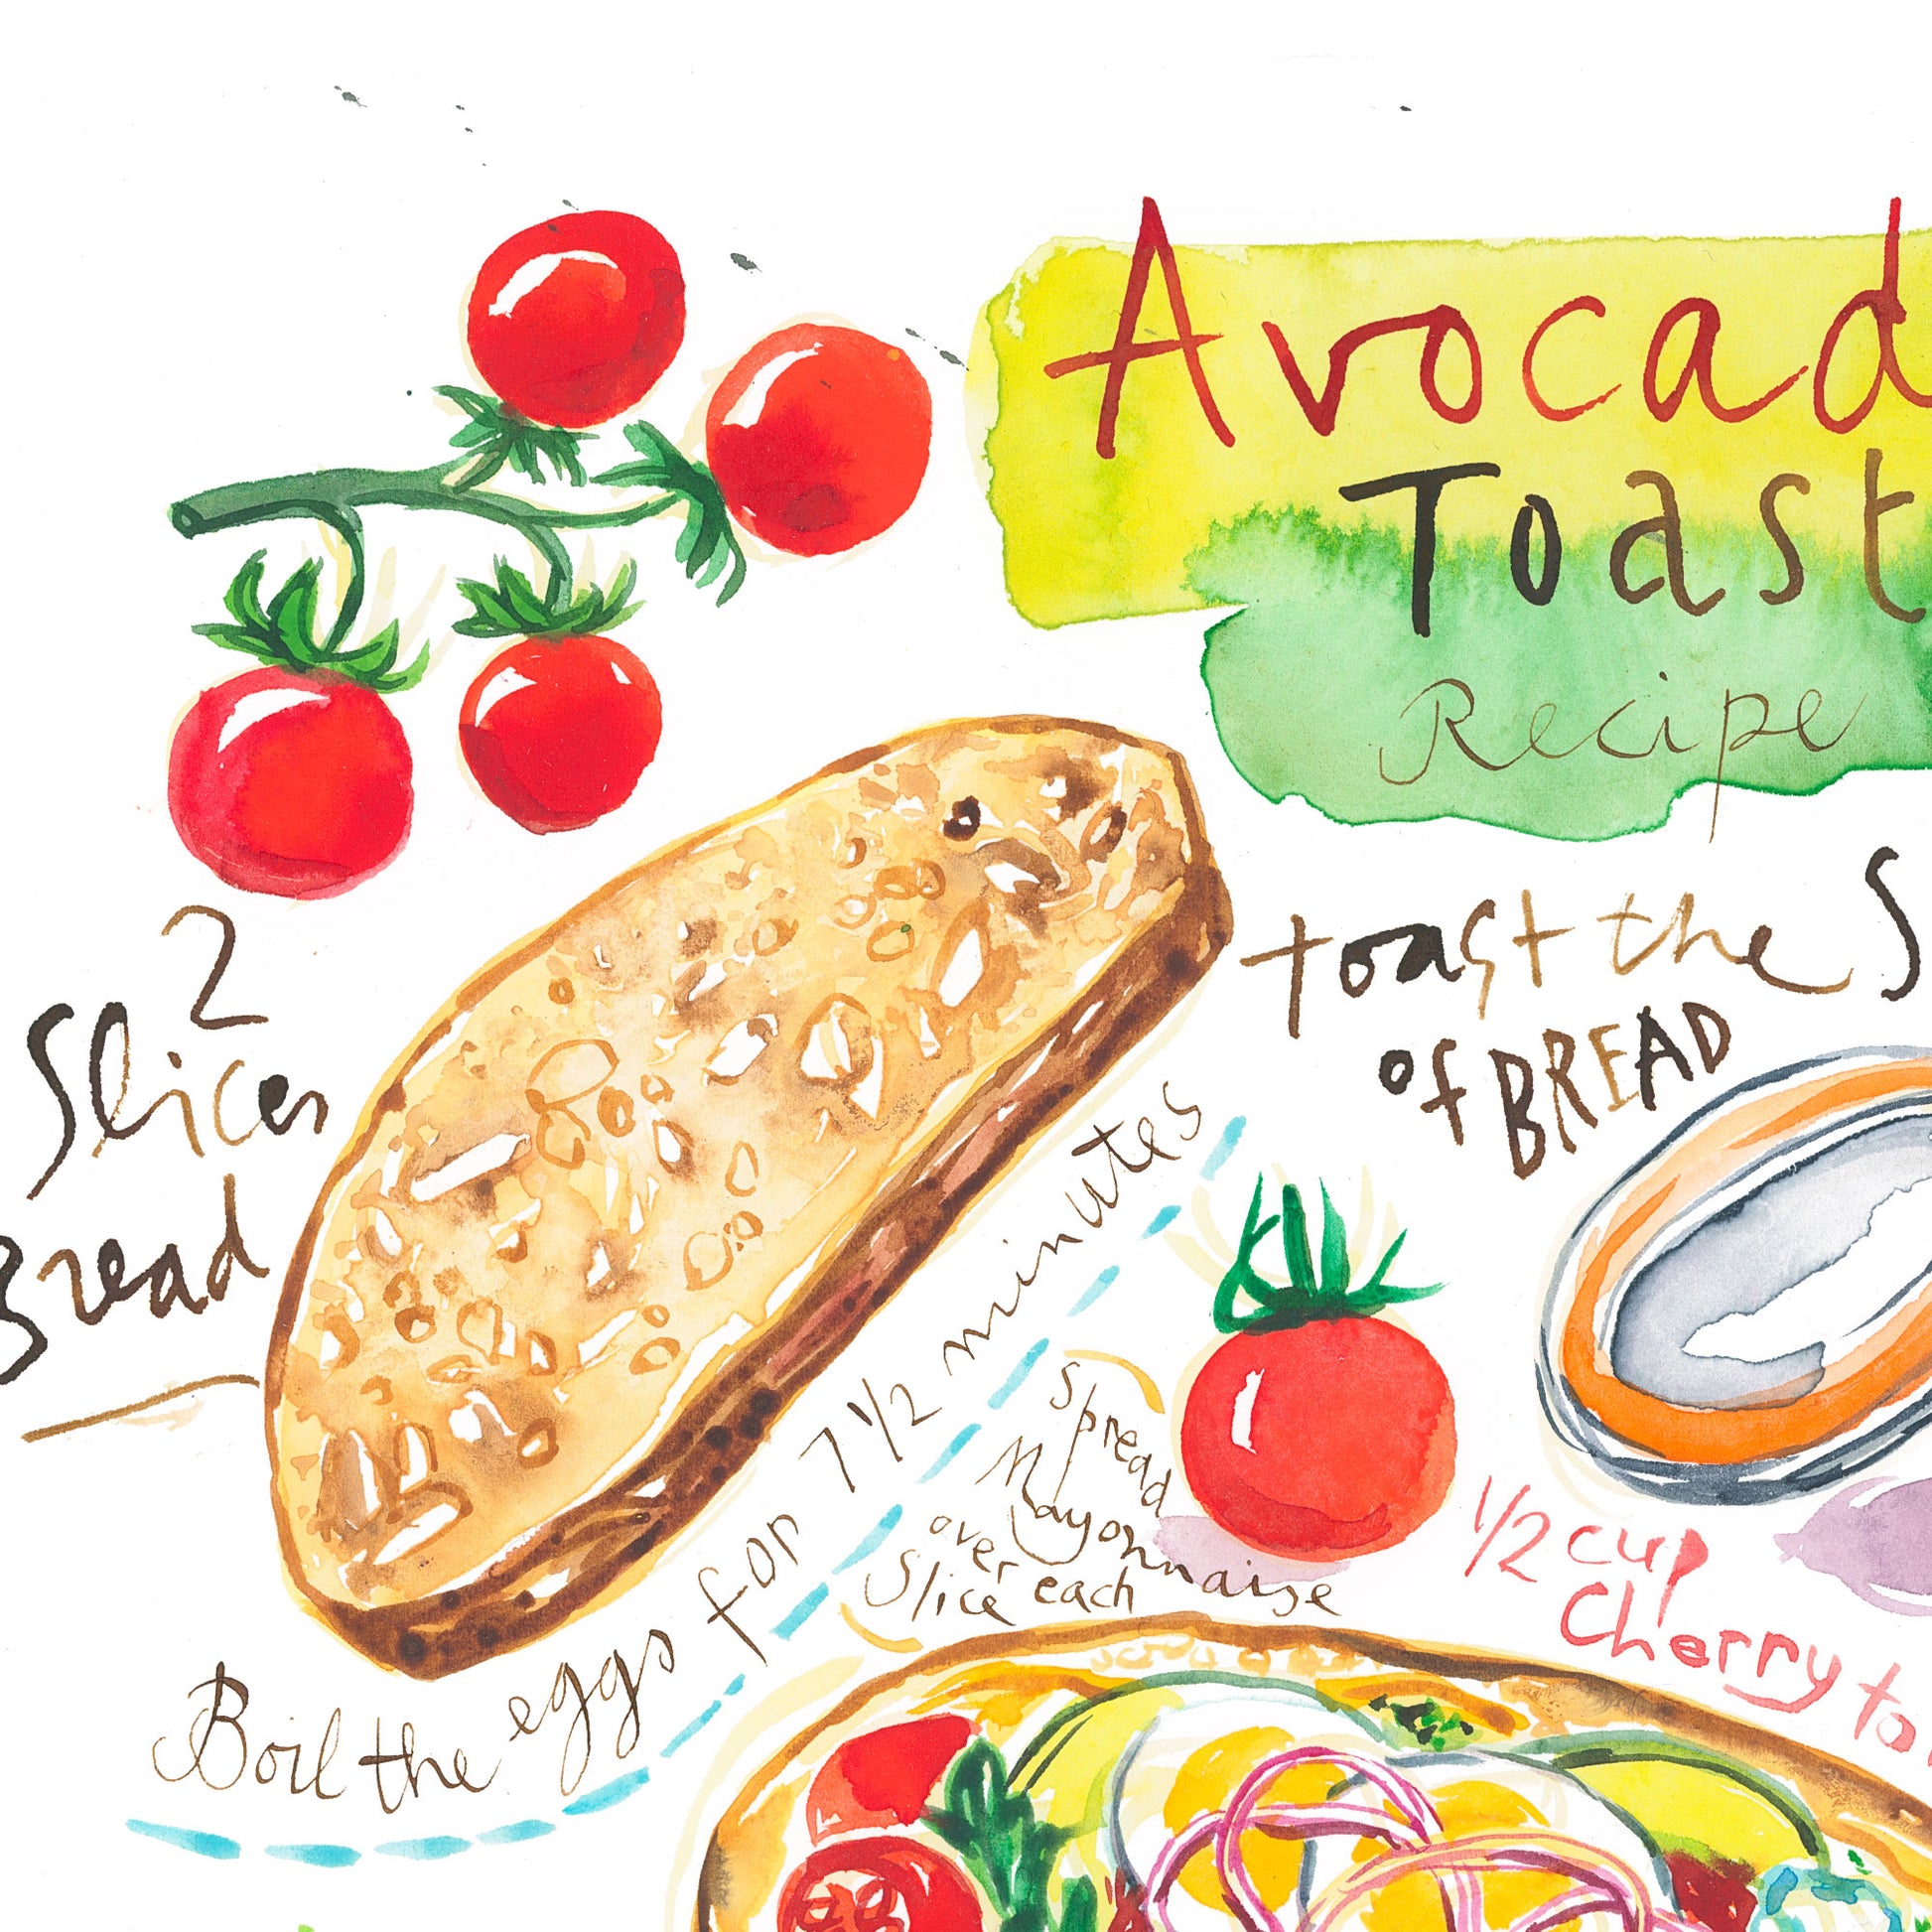 Avocad
Toast
Recipe
2
Slices
Bread
toast the S
of BREAD
Boil the eggs for 7 1/2 minutes
Spread
Mayonnaise
over
Slice each
1/2 cup
Cherry to